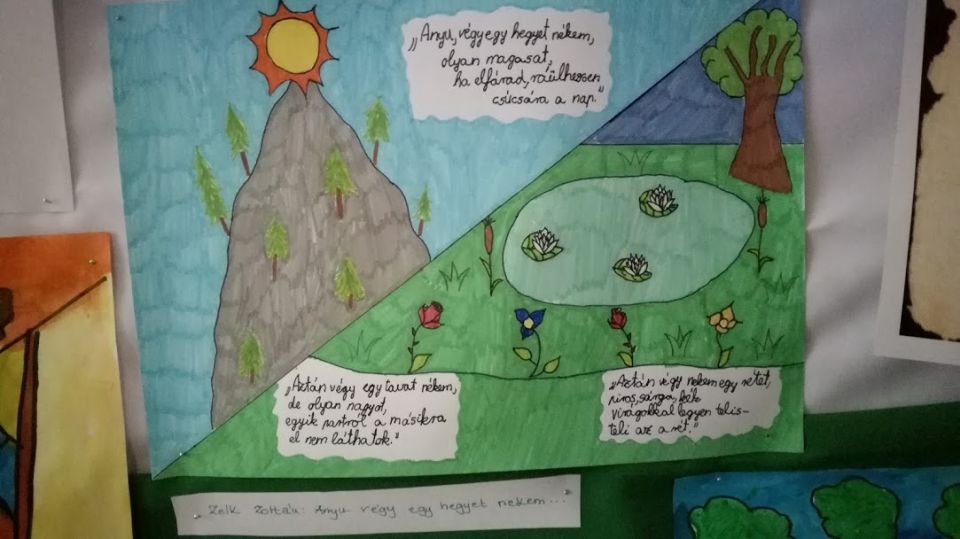 „Anyu, végy egy hegyet nékem,
olyan magasat,
ha elfárad, ráülhessen
csúcsára a nap.”
„Aztán végy egy tavat nékem,
de olyan nagyot,
egyik partról a másikra
el nem láthatok.”
„Aztán végy nekem egy rétet,
piros, sárga, kék
virágokkal legyen telis-
teli az a rét.”
Zelk Zoltán: Anyu végy egy hegyet nekem...